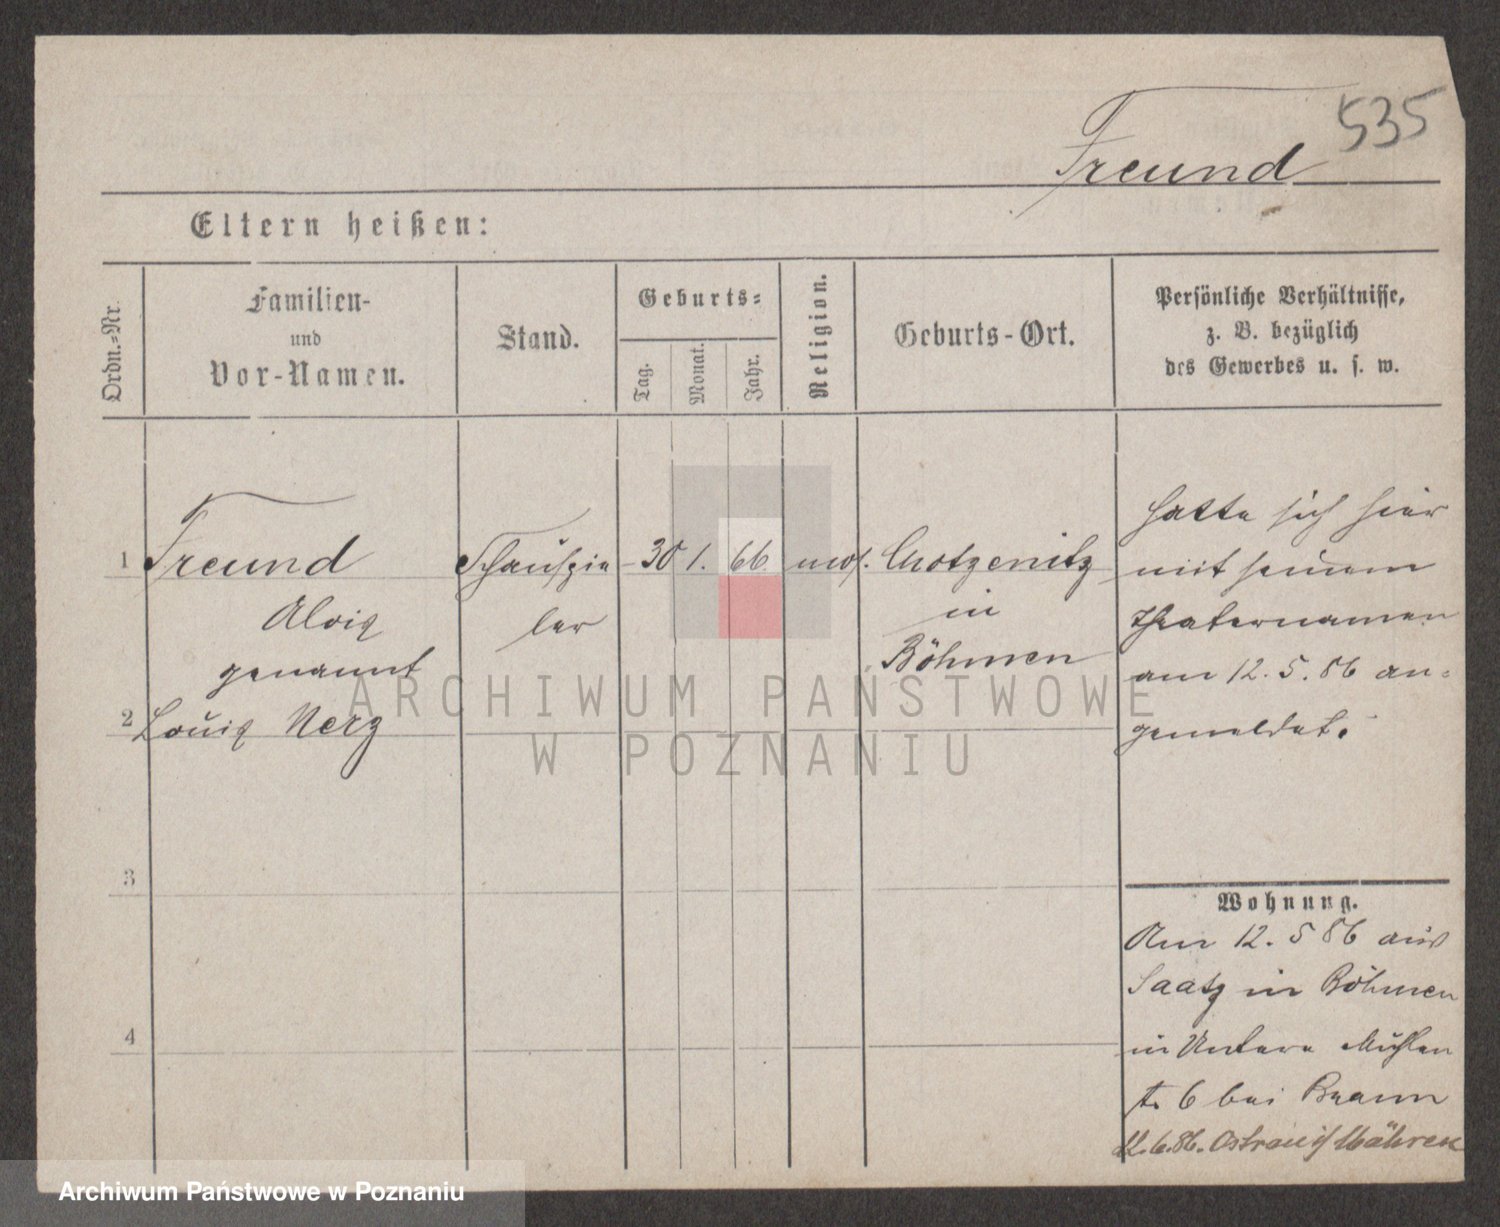 535
Freund
Eltern heißen:
Ordn.-Nr.
Familien-
und
Vor-Namen.
Stand.
Geburts-
Tag.
Monat.
Jahr.
Religion.
Geburts-Ort.
Persönliche Verhältnisse,
z. B. bezüglich
des Gewerbes u. s. w.
1 Freund Schauspie- 30 1. 66 mos. Chotzenitz
Alois ler in
genannt Böhmen
2 Louis Herz
hatte sich hier
mit seinem
Theaternamen
am 12. 5. 86 an-
gemeldet.
3
4
Wohnung.
Am 12. 5 86 aus
Saatz in Böhmen
in Untere Mühlen
str 6 bei Braun
12.6.86. Ostrau i/Mähren
ARCHIWUM PAŃSTWOWE
W POZNANIU
Archiwum Państwowe w Poznaniu